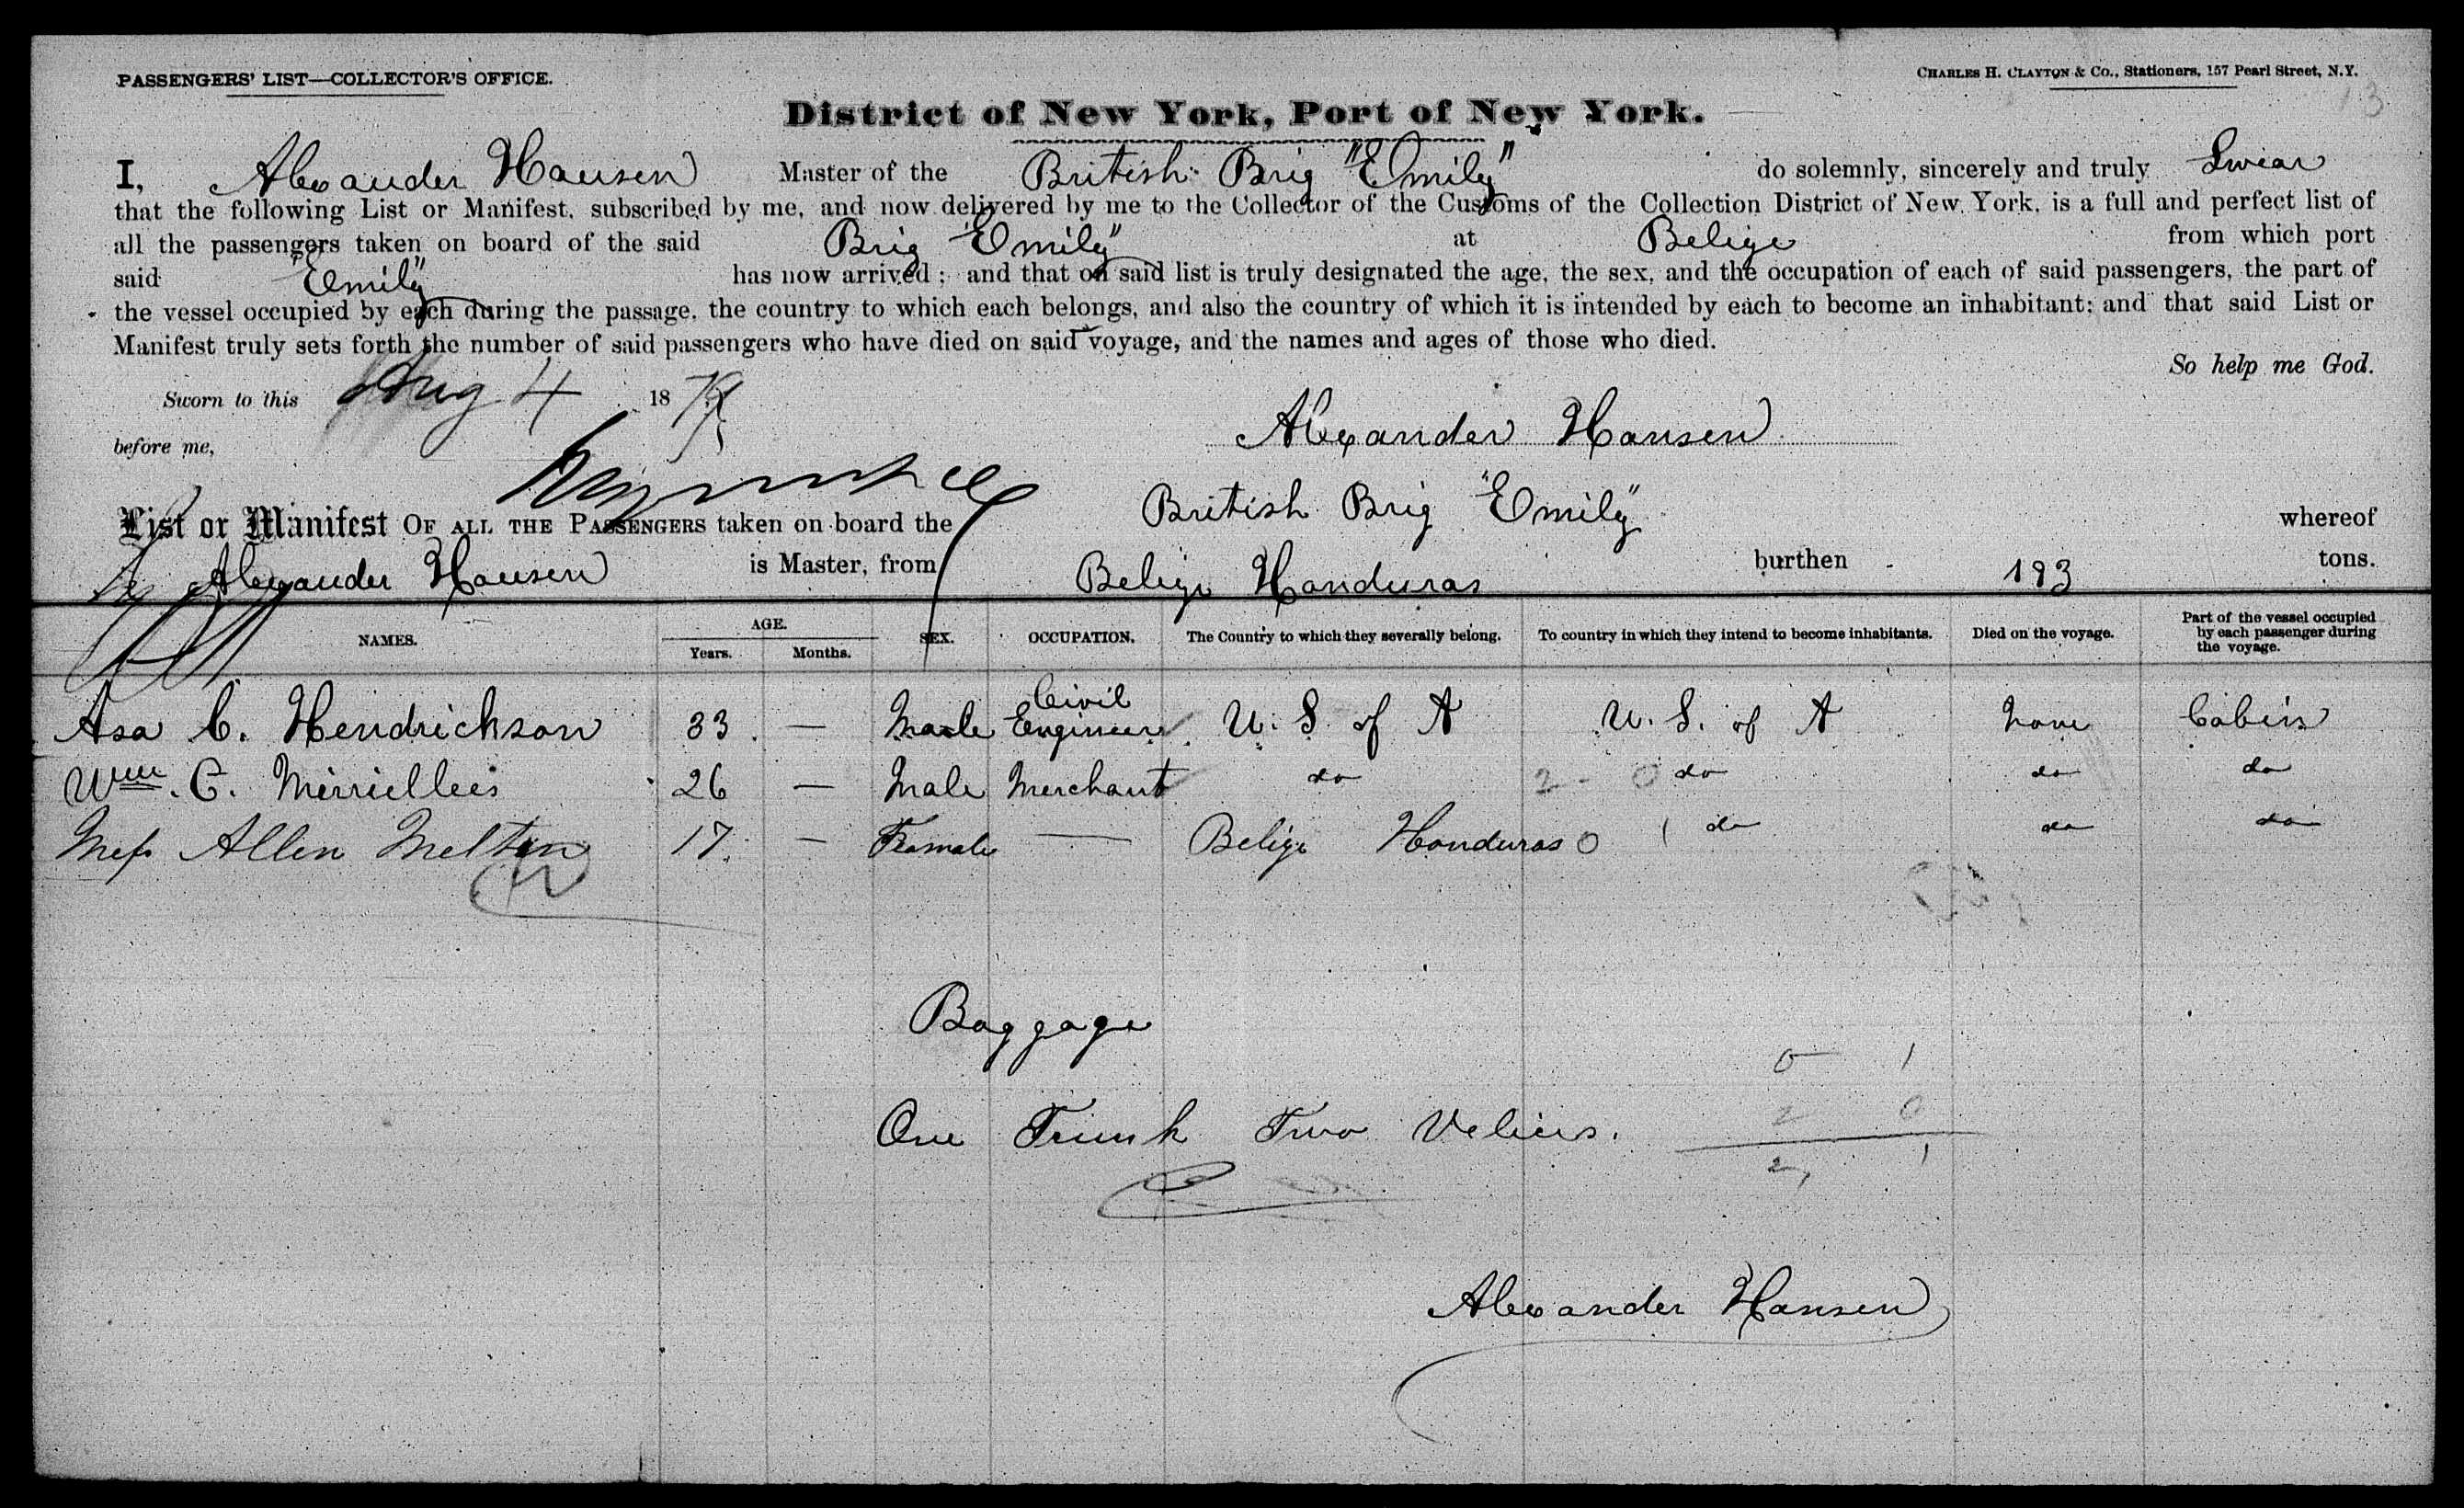 PASSENGERS' LIST—COLLECTOR'S OFFICE.
CHARLES H. CLAYTON & Co., Stationers, 157 Pearl Street, N.Y.
13
District of New York, Port of New York.
I, Alexander Hansen Master of the British Brig "Emily" do solemnly, sincerely and truly Swear
that the following List or Manifest, subscribed by me, and now delivered by me to the Collector of the Customs of the Collection District of New York, is a full and perfect list of
all the passengers taken on board of the said Brig "Emily" at Belize from which port
said "Emily" has now arrived; and that on said list is truly designated the age, the sex, and the occupation of each of said passengers, the part of
the vessel occupied by each during the passage, the country to which each belongs, and also the country of which it is intended by each to become an inhabitant; and that said List or
Manifest truly sets forth the number of said passengers who have died on said voyage, and the names and ages of those who died.
So help me God.
Sworn to this Aug 4 1879
Alexander Hansen
before me,
List or Manifest OF ALL THE PASSENGERS taken on board the British Brig "Emily" whereof
Alexander Hansen is Master, from Belize Honduras burthen 193 tons.
NAMES. AGE. Years. Months. SEX. OCCUPATION. The Country to which they severally belong. To country in which they intend to become inhabitants. Died on the voyage. Part of the vessel occupied by each passenger during the voyage.
Asa C. Hendrickson 33 — Male Civil Engineer U. S. of A U. S. of A None Cabin
Wm. C. Mirriellees 26 — Male Merchant do 2 - 0 do do do
Miss Allen Melton 17 — Female — Belize Honduras 0 1 do do do
Baggage
0 1
One Trunk Two Velices.
2 0
2, 1
Alexander Hansen